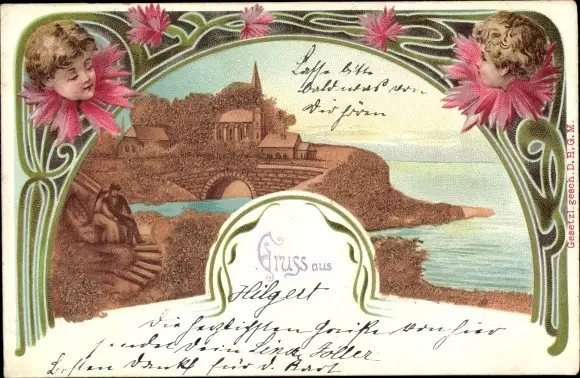 Lasse bitte
bald was von
Dir hören
Gesetzl. gesch. D.R.G.M.
Gruss aus
Hilgert
Die herzlichsten Grüße von hier
sendet dein Lina Zoller
Besten Dank für d. Kart